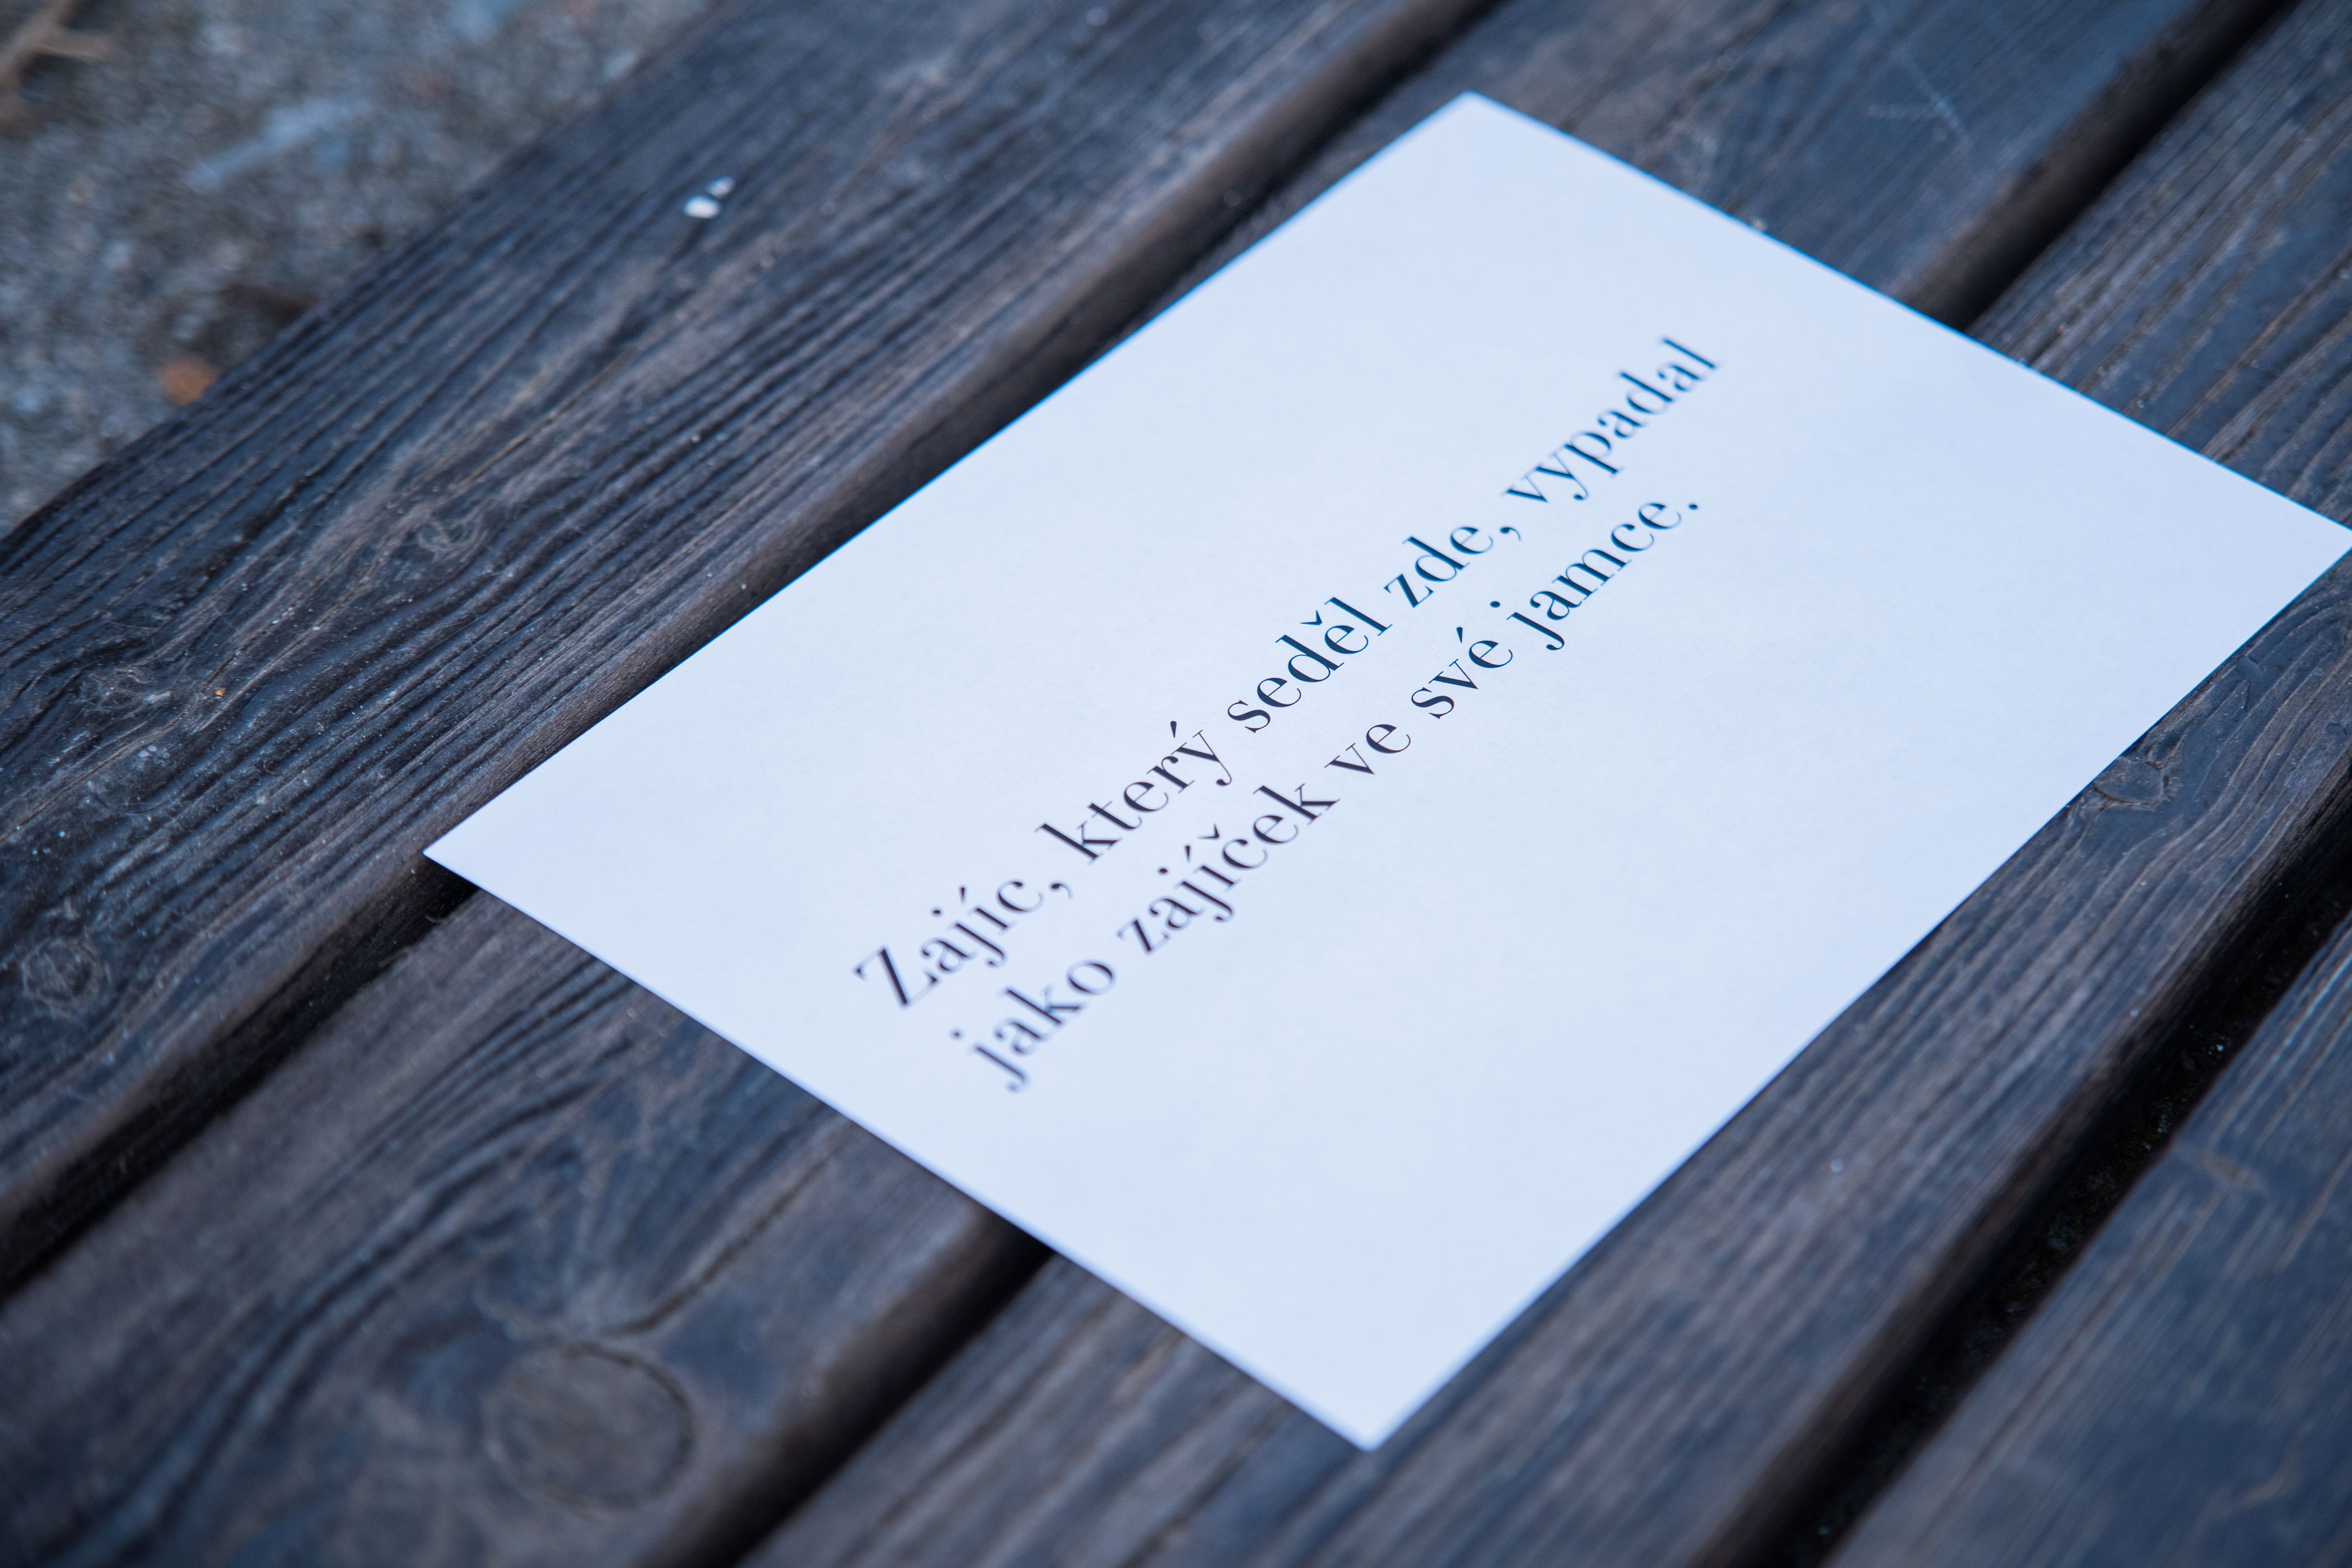 Zajíc, který seděl zde, vypadal
jako zajíček ve své jamce.